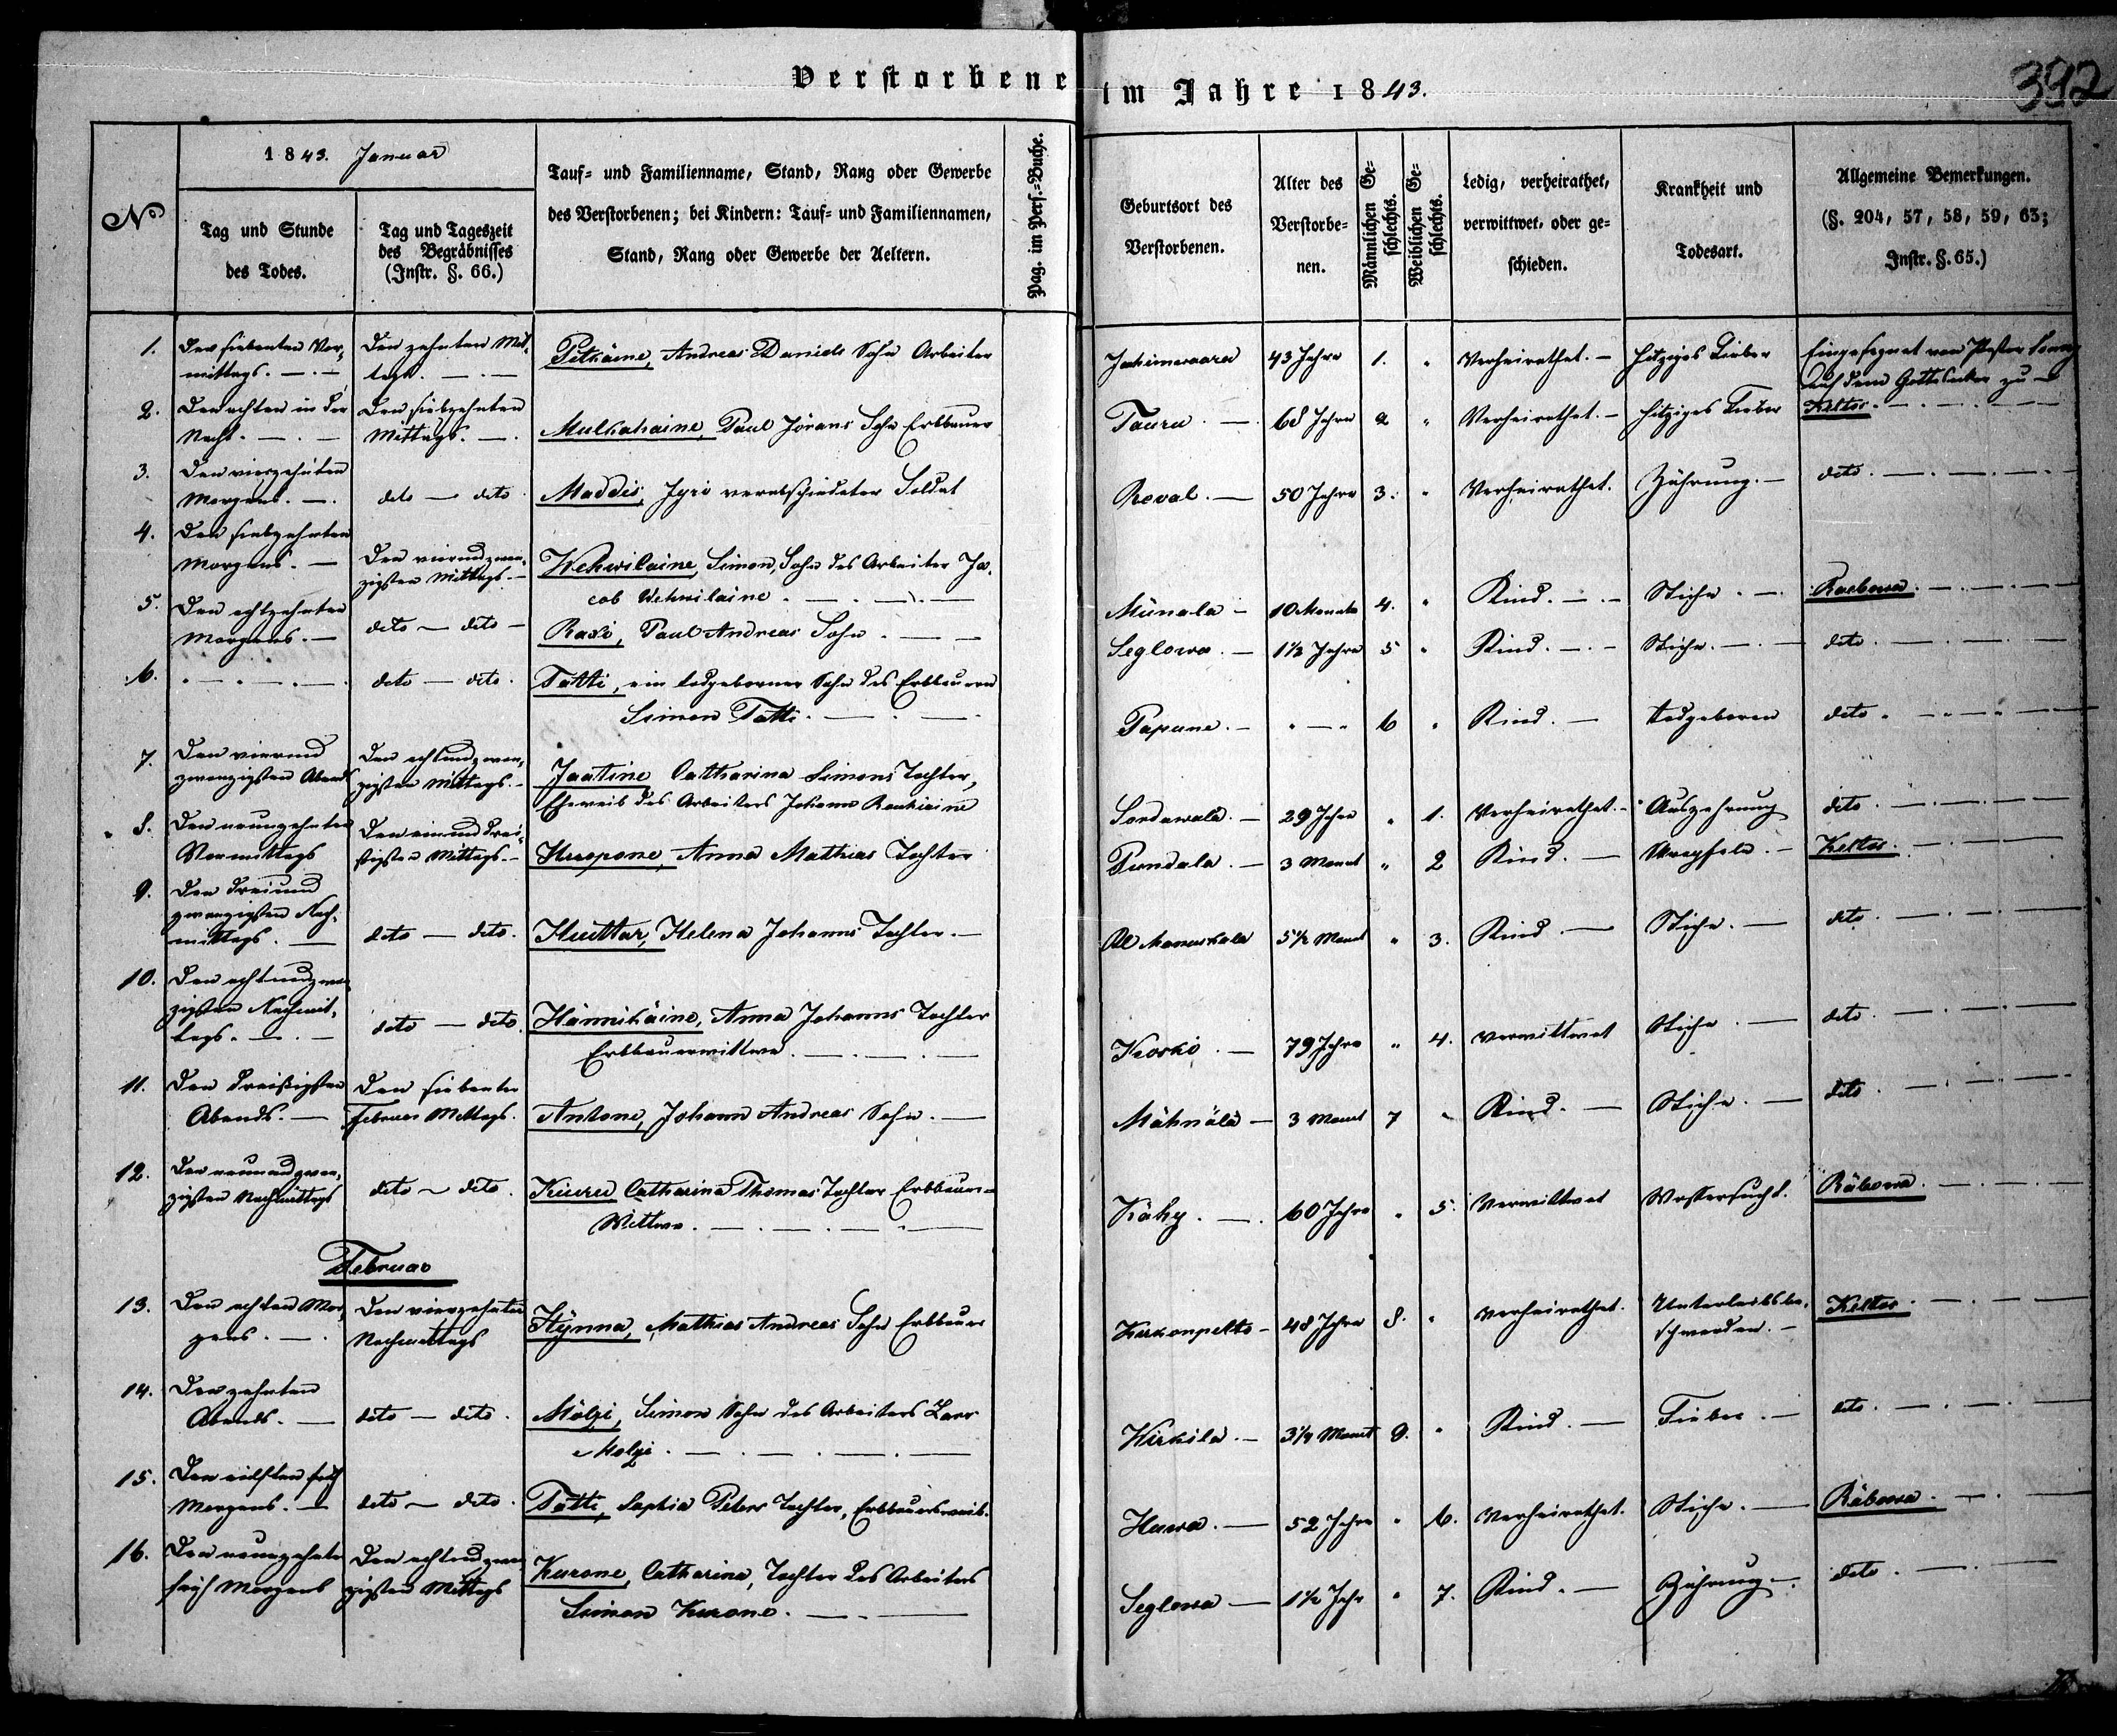 Verstorbene im Jahre 1843.
392
No
1843. Januar
Tag und Stunde
des Todes.
Tag und Tageszeit
des Begräbnisses
(Instr. §. 66.)
Tauf- und Familienname, Stand, Rang oder Gewerbe
des Verstorbenen; bei Kindern: Tauf- und Familiennamen,
Stand, Rang oder Gewerbe der Aeltern.
Pag. im Pers.-Buche.
Geburtsort des
Verstorbenen.
Alter des
Verstorbe-
nen.
Männlichen Ge-
schlechts.
Weiblichen Ge-
schlechts.
Ledig, verheirathet,
verwittwet, oder ge-
schieden.
Krankheit und
Todesart.
Allgemeine Bemerkungen.
(§. 204, 57, 58, 59, 63;
Instr. §. 65.)
1. Den siebenten Vor-
mittags.
Den zehnten Mit-
tags.
Petkäine, Andreas Daniels Sohn Arbeiter
43 Jahre 1. " Verheirathet. Hitziges Fieber
Eingesegnet von Pastor
auf dem Gottesacker zu
2. Den achten in der
Nacht.
Den siebzehnten
Mittags.
Mulkahaine, Paul Jörans Sohn Erbbauer
Tauru. 68 Jahre 2 " Verheirathet. Hitziges Fieber Keltos.
3. Den vierzehnten
Morgens.
dito dito
Maddis, Jyri verabschiedeter Soldat
Reval. 50 Jahre 3. " Verheirathet. Zehrung. dito.
4. Den siebzehnten
Morgens.
Den vierundzwan-
zigsten Mittags.
Wehwilaine, Simon, Sohn des Arbeiter Ja-
cob Wehwilaine.
Münala 10 Monate 4. " Kind. Stiche. Raebowa.
5. Den achtzehnten
Morgens.
dito dito
Raxi, Paul Andreas Sohn.
Seglowa. 1½ Jahre 5 " Kind. Stiche. dito.
6.
dito dito.
Tatti, ein todgeborner Sohn des Erbbauern
Simon Tatti.
Papune. " " 6 " Kind. todgeboren dito.
7. Den vierund
zwanzigsten Abends
Den achtundzwan-
zigsten Mittags.
Jaatine Catharina Simons Tochter,
Eheweib des Arbeiters Johann
Sordawala. 29 Jahre " 1. Verheirathet. Auszehrung dito.
8. Den neunzehnten
Vormittags
Den einunddrei-
ßigsten Mittags.
Kuopone, Anna Mathias Tochter
Pundala. 3 Monat " 2 Kind. Keltos.
9. Den dreiund
zwanzigsten Nach-
mittags.
dito dito.
Huittar, Helena Johanns Tochter.
5½ Monat " 3. Kind. Stiche. dito.
10. Den achtundzwan-
zigsten Nachmit-
tags.
dito dito.
Hännikäine, Anna Johanns Tochter
Erbbauerwittwe.
Koski. 79 Jahre " 4. verwittwet Stiche. dito.
11. Den dreißigsten
Abends.
Den siebenten
Februar Mittags.
Antone, Johann Andreas Sohn.
Mähnälä 3 Monat 7 " Kind. Stiche. dito.
12. Den neunundzwan-
zigsten Nachmittags
dito dito.
Kiuru Catharina Thomas Tochter Erbbauer-
Wittwe.
Käky. 60 Jahre " 5. Verwittwet Wassersucht. Räbowa.
Februar
13. Den achten Mor-
gens.
Den vierzehnten
Nachmittags
Hynna, Mathias Andreas Sohn Erbbauer
Kirkonpelto 48 Jahre 8. " Verheirathet. Unterleibsbe-
schwerden. Keltos.
14. Den zehnten
Abends.
dito dito.
Mölzi, Simon Sohn des Arbeiters Lars
Molzi.
Kirkila. 3½ Monat 9. " Kind. Fieber. dito.
15. Den eilften früh
Morgens.
dito dito.
Tatti, Sophia Peters Tochter, Erbbauersweib.
Huwa. 52 Jahre " 6. Verheirathet. Stiche. Räbowa.
16. Den neunzehnten
früh Morgens
Den achtundzwan-
zigsten Mittags
Kurone, Catharina, Tochter des Arbeiters
Simon Kurone.
Seglowa 1½ Jahr " 7. Kind. Zehrung. dito.